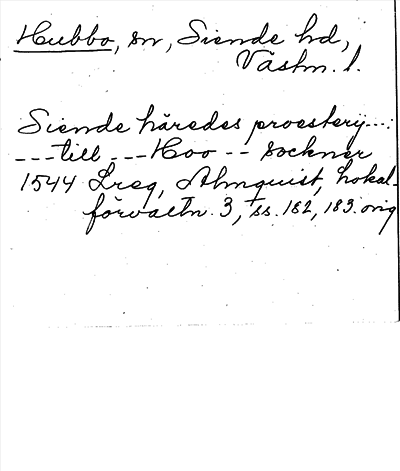 Hubbo, sn, Siende hd,
Västm. l.
Siende häredes proesterij---:
---till ---Hoo-- sockner
1544 Lreg, Almquist, Lokal-
förvaltn. 3, ss. 182, 183. orig